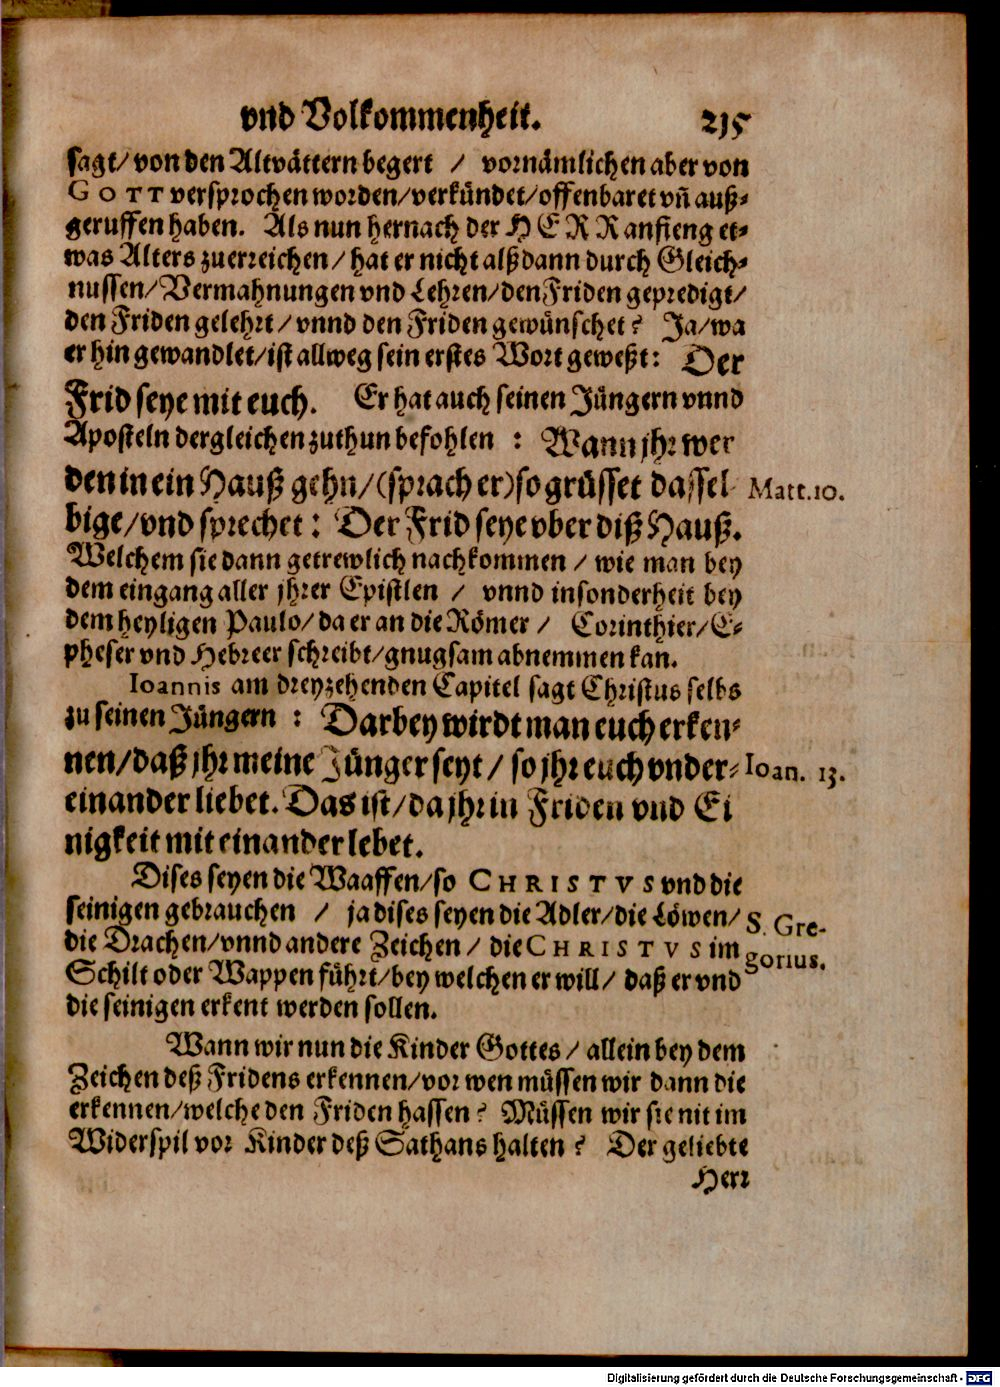 vnd Volkommenheit. 215
sagt/ von den Altvättern begert / vornämlichen aber von
GOTT versprochen worden/ verkündet/ offenbaret vñ auß-
geruffen haben. Als nun hernach der HERR anfieng et-
was Alters zuerreichen/ hat er nicht alßdann durch Gleich-
nussen/ Vermahnungen vnd Lehren/ den Friden gepredigt/
den Friden gelehrt/ vnnd den Friden gewünschet? Ja/ wa
er hin gewandlet/ ist allweg sein erstes Wort geweßt: Der
Frid seye mit euch. Er hat auch seinen Jüngern vnnd
Aposteln dergleichen zuthun befohlen : Wann jhr wer
den in ein Hauß gehn/ (sprach er) so grüsset dassel Matt. 10.
bige/ vnd sprechet: Der Frid seye vber diß Hauß.
Welchem sie dann getrewlich nachkommen / wie man bey
dem eingang aller jhrer Epistlen / vnnd insonderheit bey
dem heyligen Paulo/ da er an die Römer / Corinthier/ E-
pheser vnd Hebreer schreibt/ gnugsam abnemmen kan.
Ioannis am dreyzehenden Capitel sagt Christus selbs
zu seinen Jüngern : Darbey wirdt man euch erken-
nen/ daß jhr meine Jünger seyt / so jhr euch vnder- Ioan. 13.
einander liebet. Das ist/ da jhr in Friden vnd Ei
nigkeit mit einander lebet.
Dises seyen die Waaffen/ so CHRISTVS vnd die
seinigen gebrauchen / ja dises seyen die Adler/ die Löwen/ S. Gre-
die Drachen/ vnnd andere Zeichen / die CHRISTVS im gorius.
Schilt oder Wappen führt/ bey welchen er will/ daß er vnd
die seinigen erkent werden sollen.
Wann wir nun die Kinder Gottes / allein bey dem
Zeichen deß Fridens erkennen/ vor wen müssen wir dann die
erkennen/ welche den Friden hassen? Müssen wir sie nit im
Widerspil vor Kinder deß Sathans halten? Der geliebte
Herr
Digitalisierung gefördert durch die Deutsche Forschungsgemeinschaft - DFG